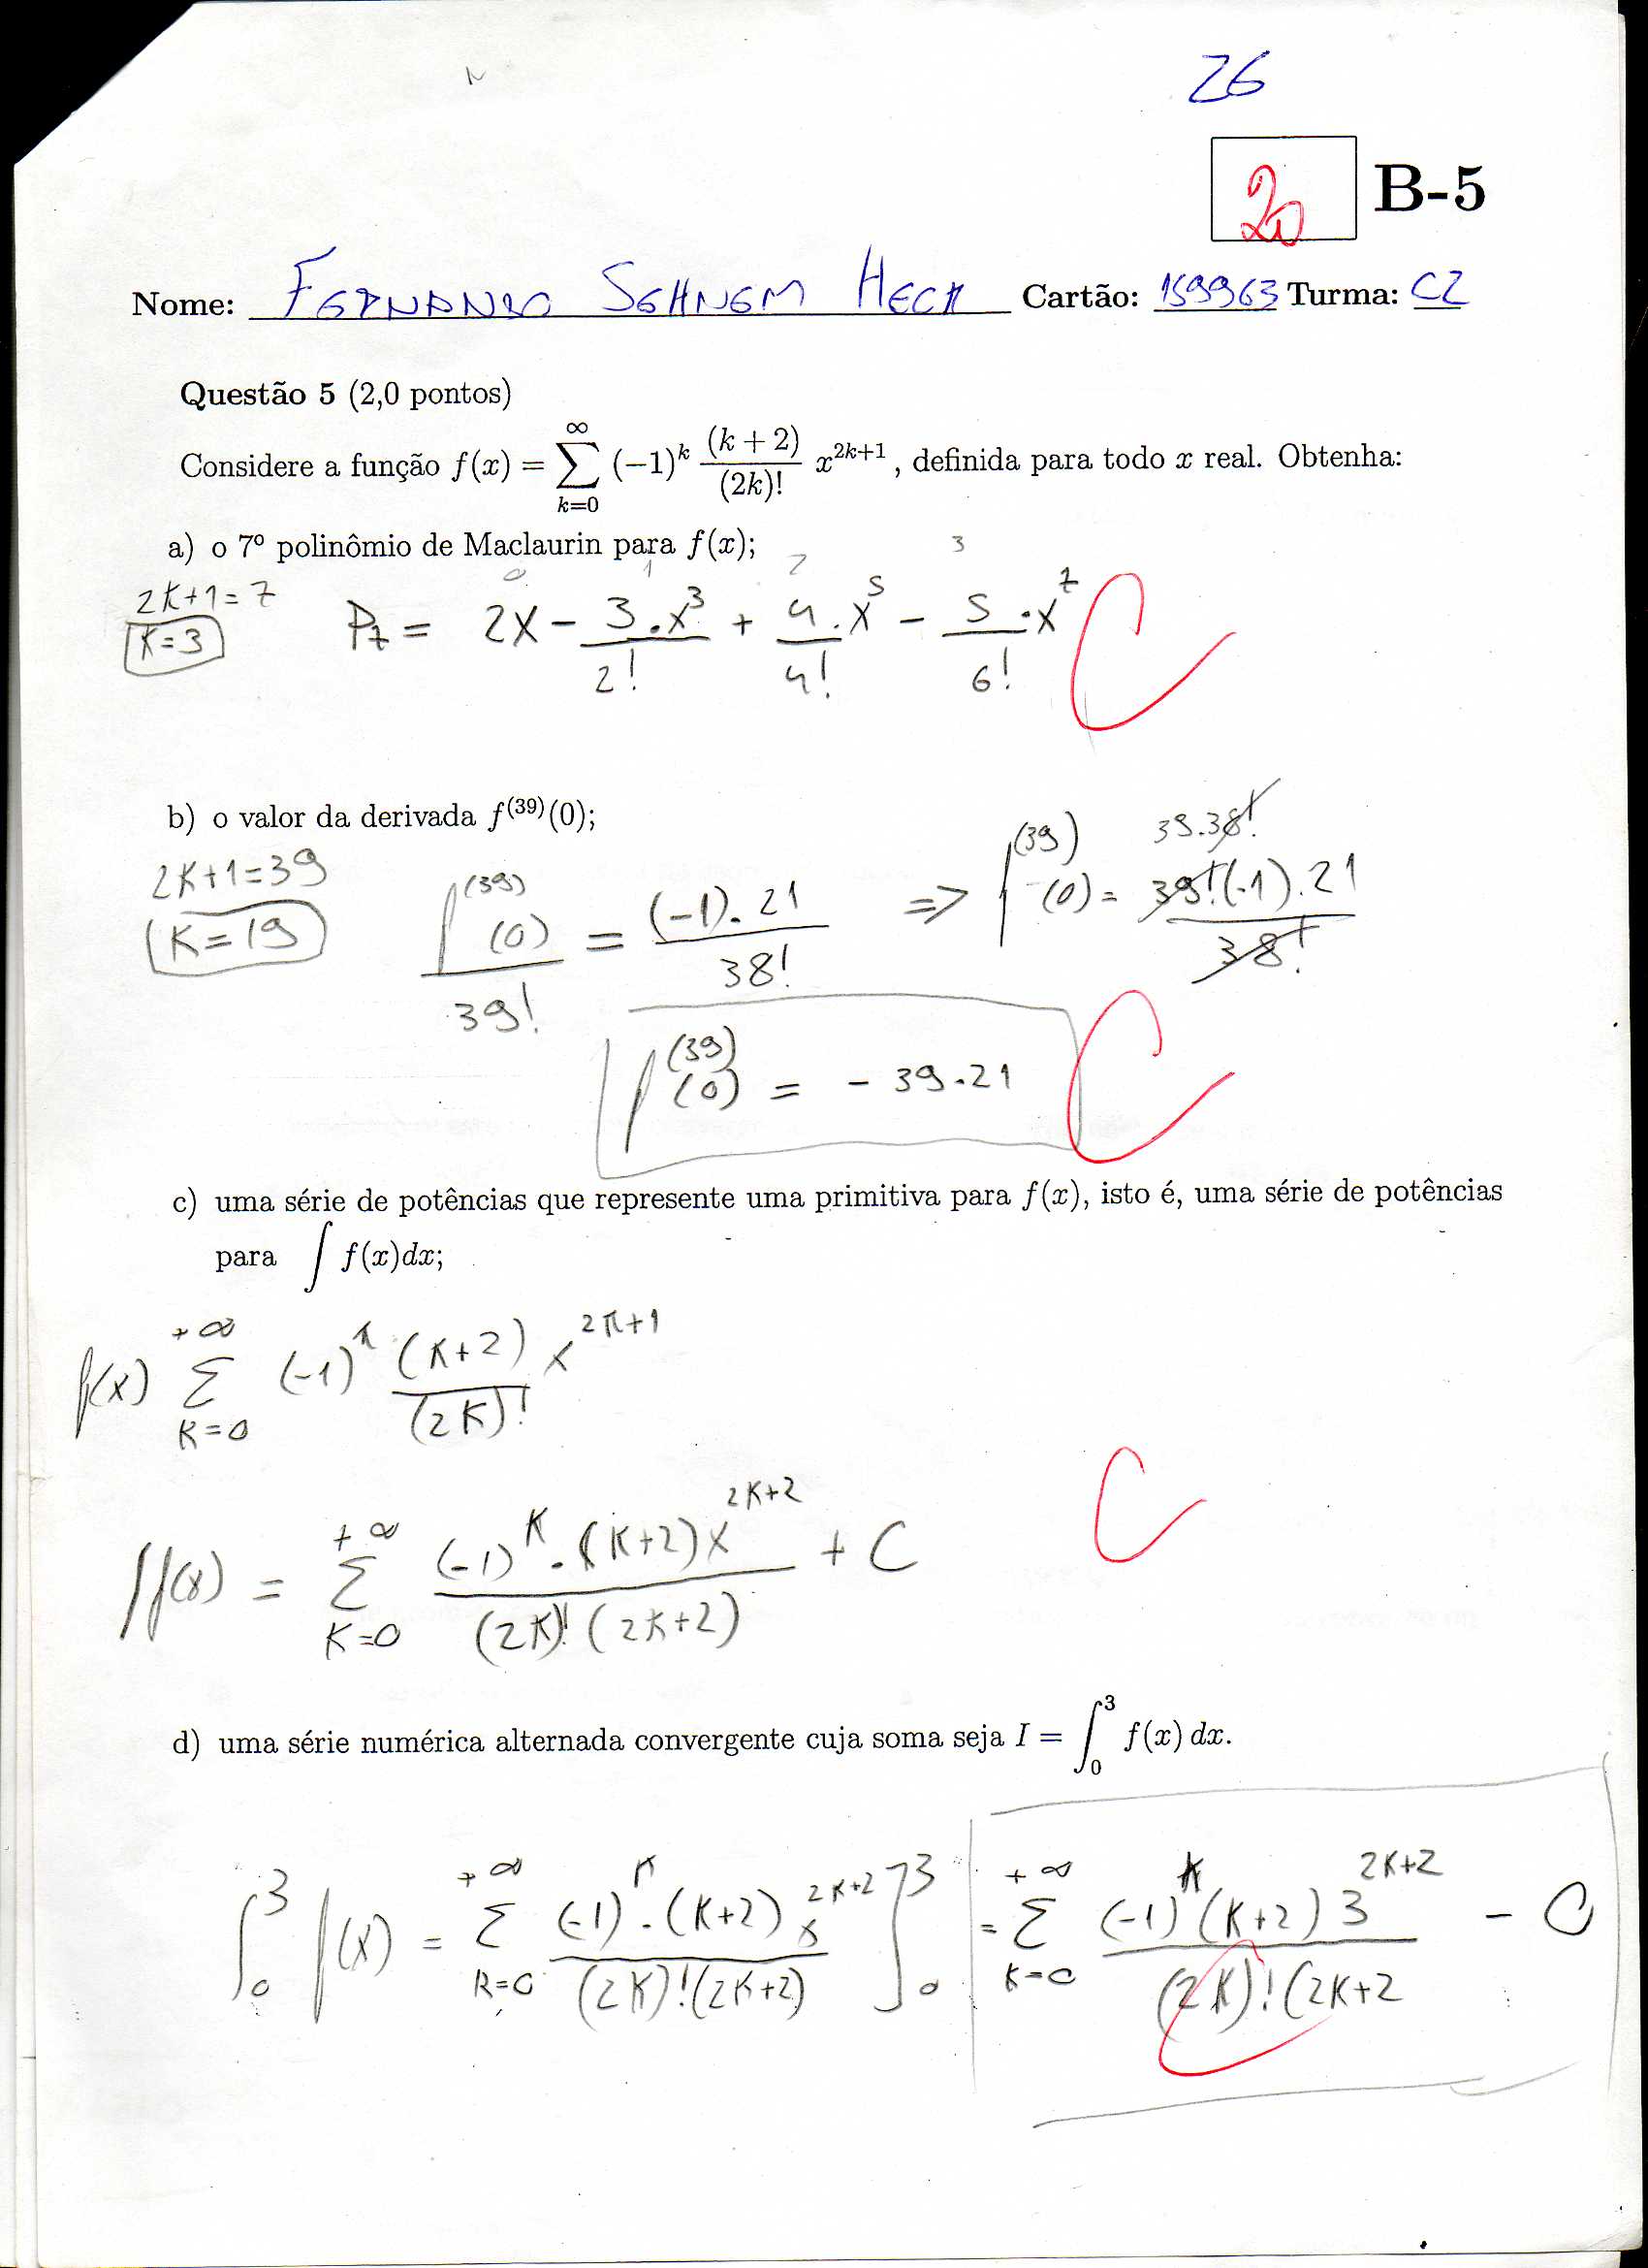 26
20 B-5
Nome: FERNANDO SEHNEM HECK Cartão: 159963 Turma: C2
Questão 5 (2,0 pontos)
Considere a função f(x) = ∑_{k=0}^{∞} (−1)^k (k + 2)/(2k)! x^{2k+1}, definida para todo x real. Obtenha:
a) o 7º polinômio de Maclaurin para f(x);
0 1 2 3
2K+1=7
K=3
P_7 = 2X − 3.x^3/2! + 4.x^5/4! − 5.x^7/6! C
b) o valor da derivada f^{(39)}(0);
2K+1=39
K=19
f^{(39)}(0)/39! = (−1).21/38! => f^{(39)}(0) = 39!(-1).21/38! 39.38!
f^{(39)}(0) = − 39.21 C
c) uma série de potências que represente uma primitiva para f(x), isto é, uma série de potências
para ∫ f(x)dx;
f(x) ∑_{K=0}^{+∞} (-1)^K (K+2)/(2K)! x^{2K+1}
∫f(x) = ∑_{K=0}^{+∞} (-1)^K.(K+2)x^{2K+2}/(2K)!(2K+2) + C C
d) uma série numérica alternada convergente cuja soma seja I = ∫_0^3 f(x) dx.
∫_0^3 f(x) = ∑_{K=0}^{+∞} (-1)^K.(K+2)x^{2K+2}/(2K)!(2K+2) ]_0^3 = ∑_{K=0}^{+∞} (-1)^K(K+2)3^{2K+2}/(2K)!(2K+2 − 0 C